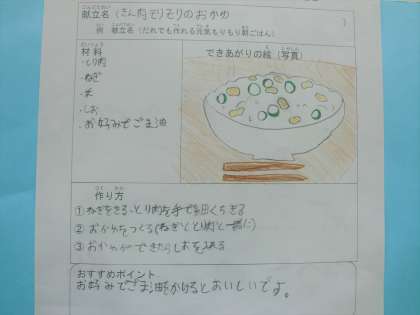 献立名 きん肉モリモリのおかゆ
例 献立名(だれでも作れる元気もりもり朝ごはん)
材料
・とり肉
・ねぎ
・米
・しお
・お好みでごま油
できあがりの絵(写真)
作り方
①ねぎをきる、とり肉を手で細くちぎる
②おかゆをつくる(ねぎととり肉と一緒に)
③おかゆができたらしおを入る
おすすめポイント
お好みでごま油をかけるとおいしいです。